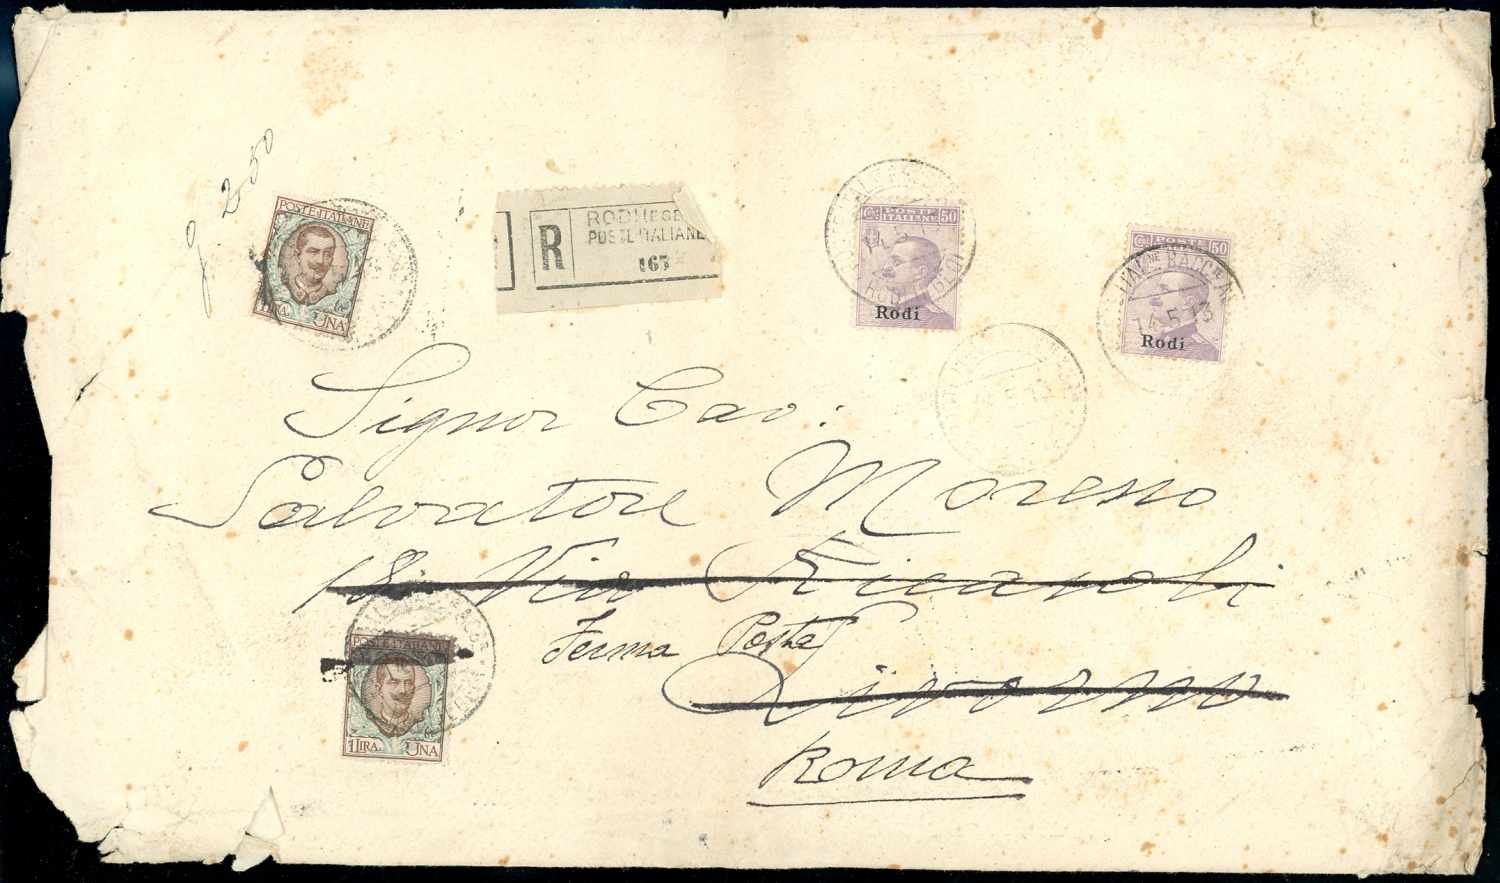 g. 250
POSTE·ITALIANE
1 LIRA. UNA
R
RODI (EGEO
POSTE ITALIANE
167
Cmi POSTE ITALIANE 50
Rodi
POSTE 50
RACC
14.5.13
Rodi
Signor Cav:
Salvatore Moreno
18 Via Ricasoli
Ferma Posta
Livorno
Roma
POSTE·ITALIANE
1 LIRA. UNA